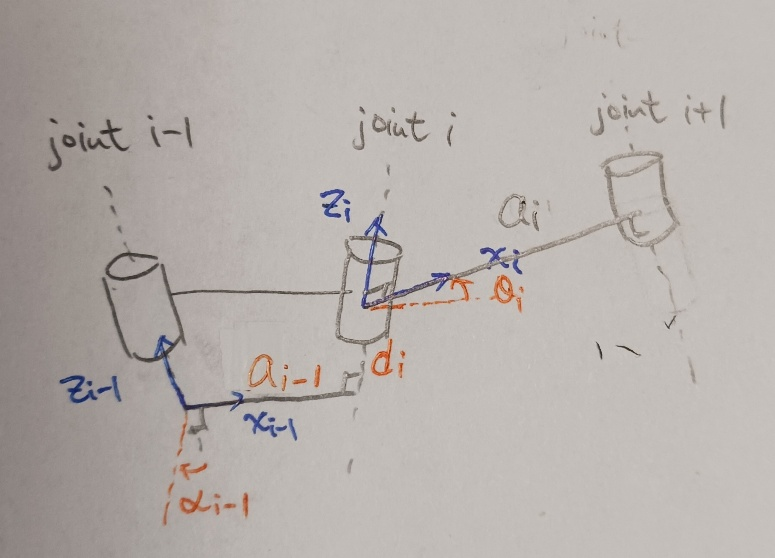 joint i-1
joint i
joint i+1
Zi
ai
xi
θi
Zi-1
ai-1
di
xi-1
αi-1